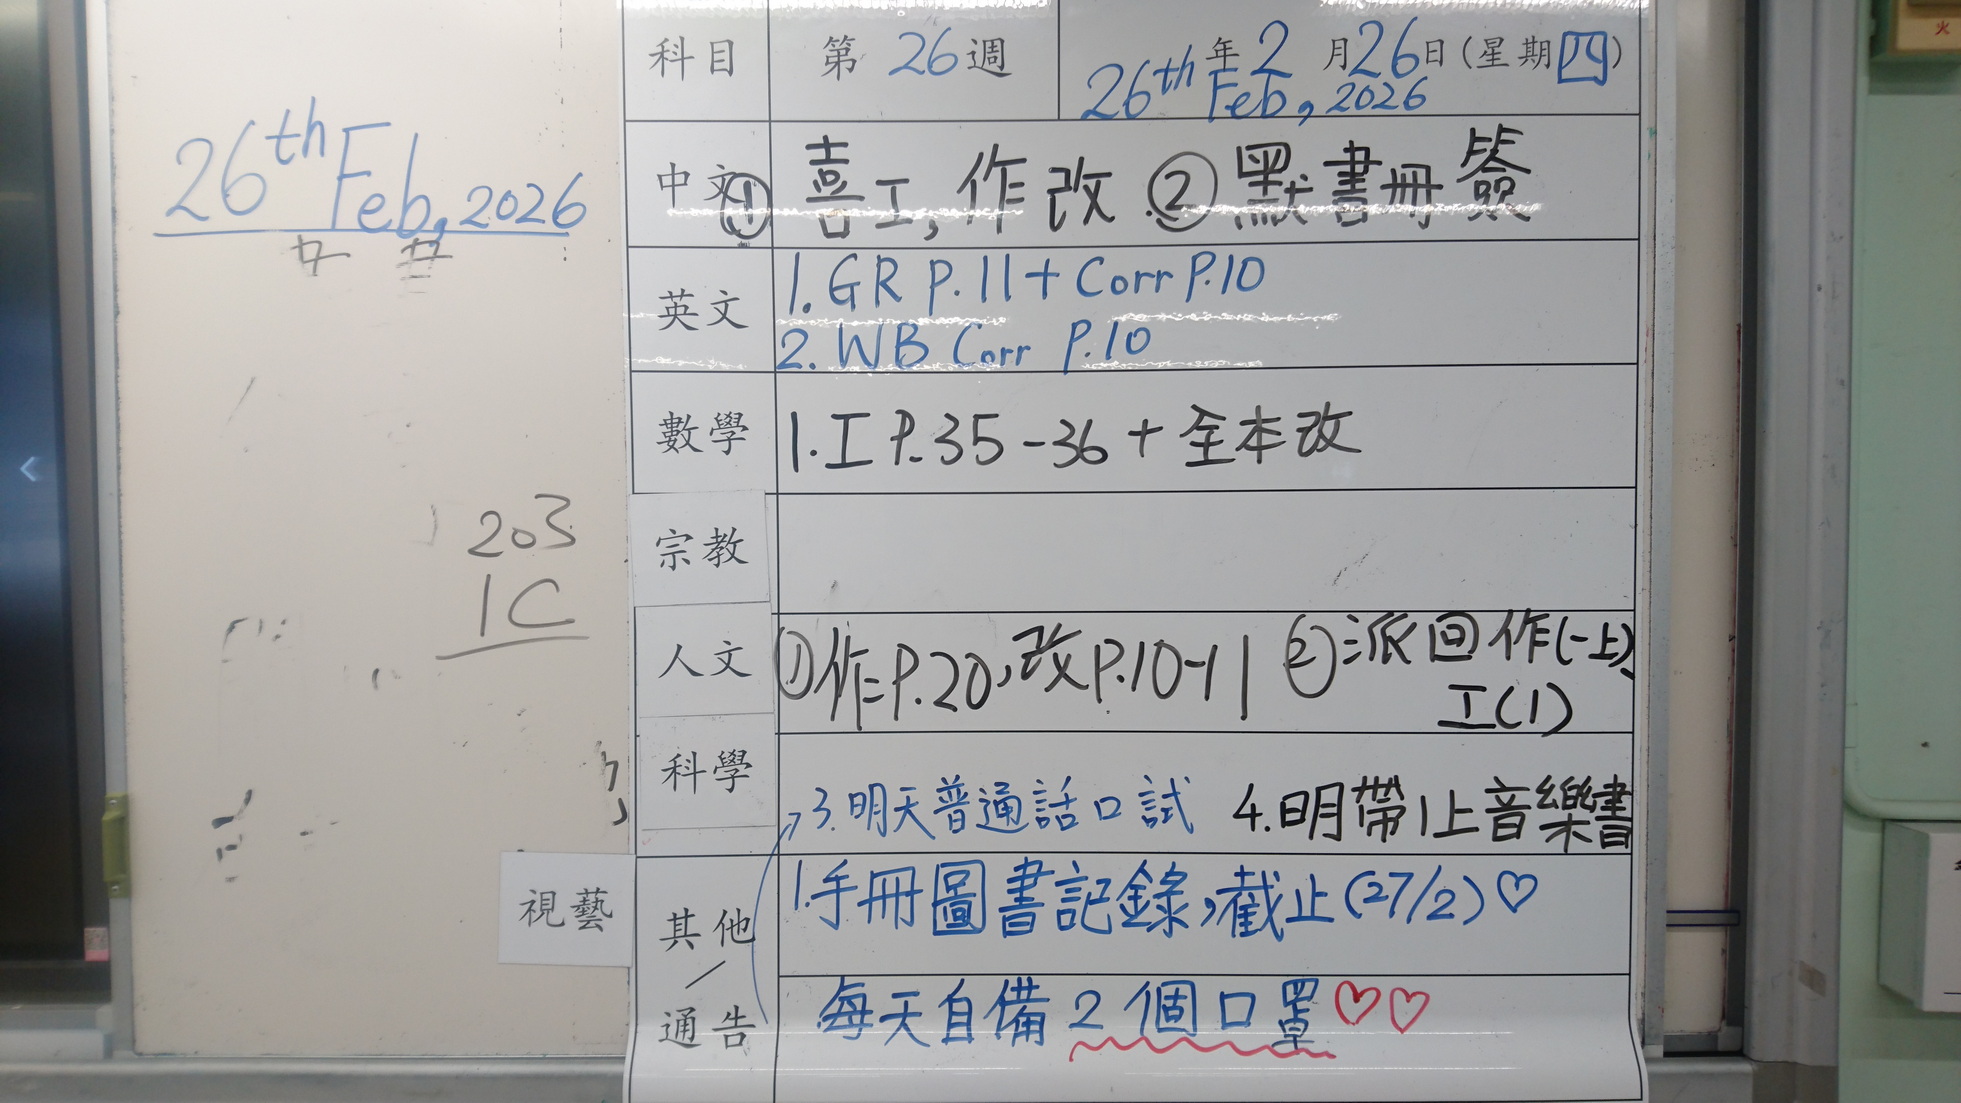 26th Feb, 2026
203
1C
視藝
科目 第 26 週 年 2 月 26 日 (星期 四)
26th Feb, 2026
中文 ① 喜工, 作改 ② 默書冊簽
英文 1. GR P.11 + Corr P.10
2. WB Corr P.10
數學 1. 工 P.35-36 + 全本改
宗教
人文 ① 作 P.20, 改 P.10-11 ② 派回 作(一上)、
工(1)
科學 3. 明天普通話口試 4. 明帶1上音樂書
其他/通告 1. 手冊圖書記錄, 截止 (27/2) ♡
每天自備 2 個口罩 ♡♡
火